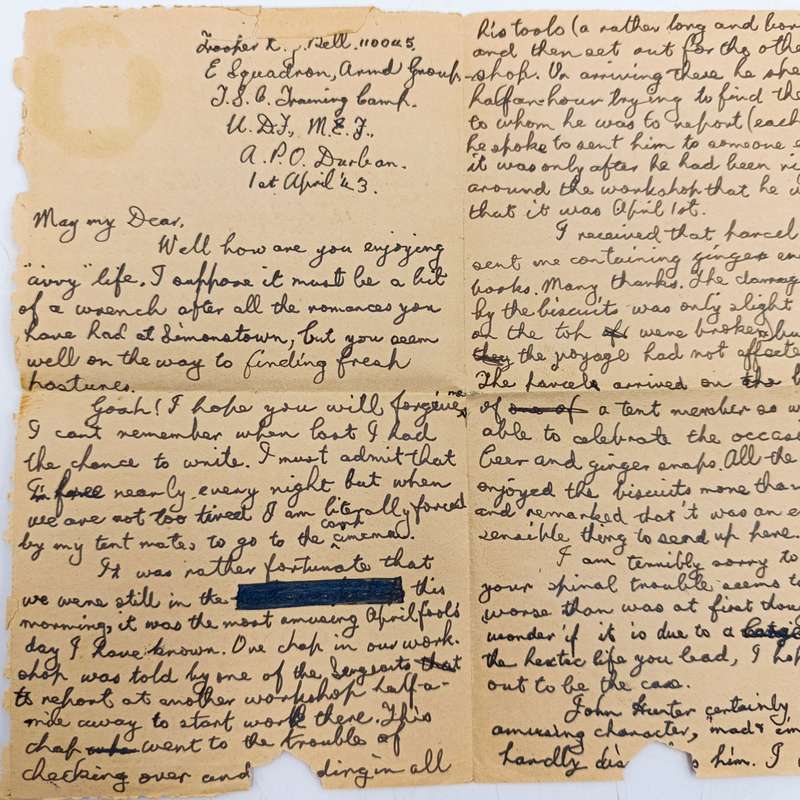 Trooper R. J. Bell. 110045.
E Squadron, Armd Group.
T.S.C. Training Camp.
U.D.F., M.E.F.,
A.P.O. Durban.
1st April '43.
May my Dear,
Well how are you enjoying
"civvy" life. I suppose it must be a bit
of a wrench after all the romances you
have had at Simonstown, but you seem
well on the way to finding fresh
pastures.
Gosh! I hope you will forgive me
I cant remember when last I had
the chance to write. I must admit that
nearly every night but when
we are not too tired I am literally forced
by my tent mates to go to the camp cinema.
It was rather fortunate that
we were still in the this
morning, it was the most amusing April fools
day I have known. One chap in our work-
shop was told by one of the Sergeants that
to report at another workshop half-a-
mile away to start work there. This
chap who went to the troubles of
checking over and ding in all
his tools (a rather long and bor
and then set out for the othe
shop. On arriving there he spe
half an-hour trying to find the
to whom he was to report (each
he spoke to sent him to someone e
it was only after he had been ri
around the workshop that he w
that it was April 1st.
I received that parcel
sent me containing ginger
books. Many thanks. The damage
by the biscuits was only slight
on the top of were broken bu
they the voyage had not affecte
The parcels arrived on the b
of one of a tent member so w
able to celebrate the occasi
beer and ginger snaps. All the
enjoyed the biscuits more than
and remarked that 't was an e
sensible thing to send up here.
I am terribly sorry to
your spinal trouble seems to
worse than was at first thou
wonder if it is due to a
the hectic life you lead, I hop
out to be the case.
John Hunter certainly
amusing character, "mad"
hardly dis s him. I